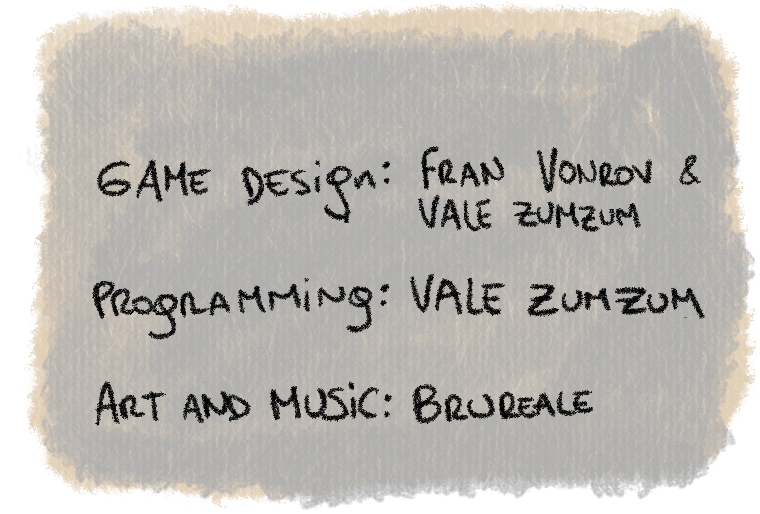 GAME DESign: FRAN VONROV &
VALE ZUMZUM
PROgRAMMiNg: VALE ZUMZUM
ART AND MUSiC: BRUREALE